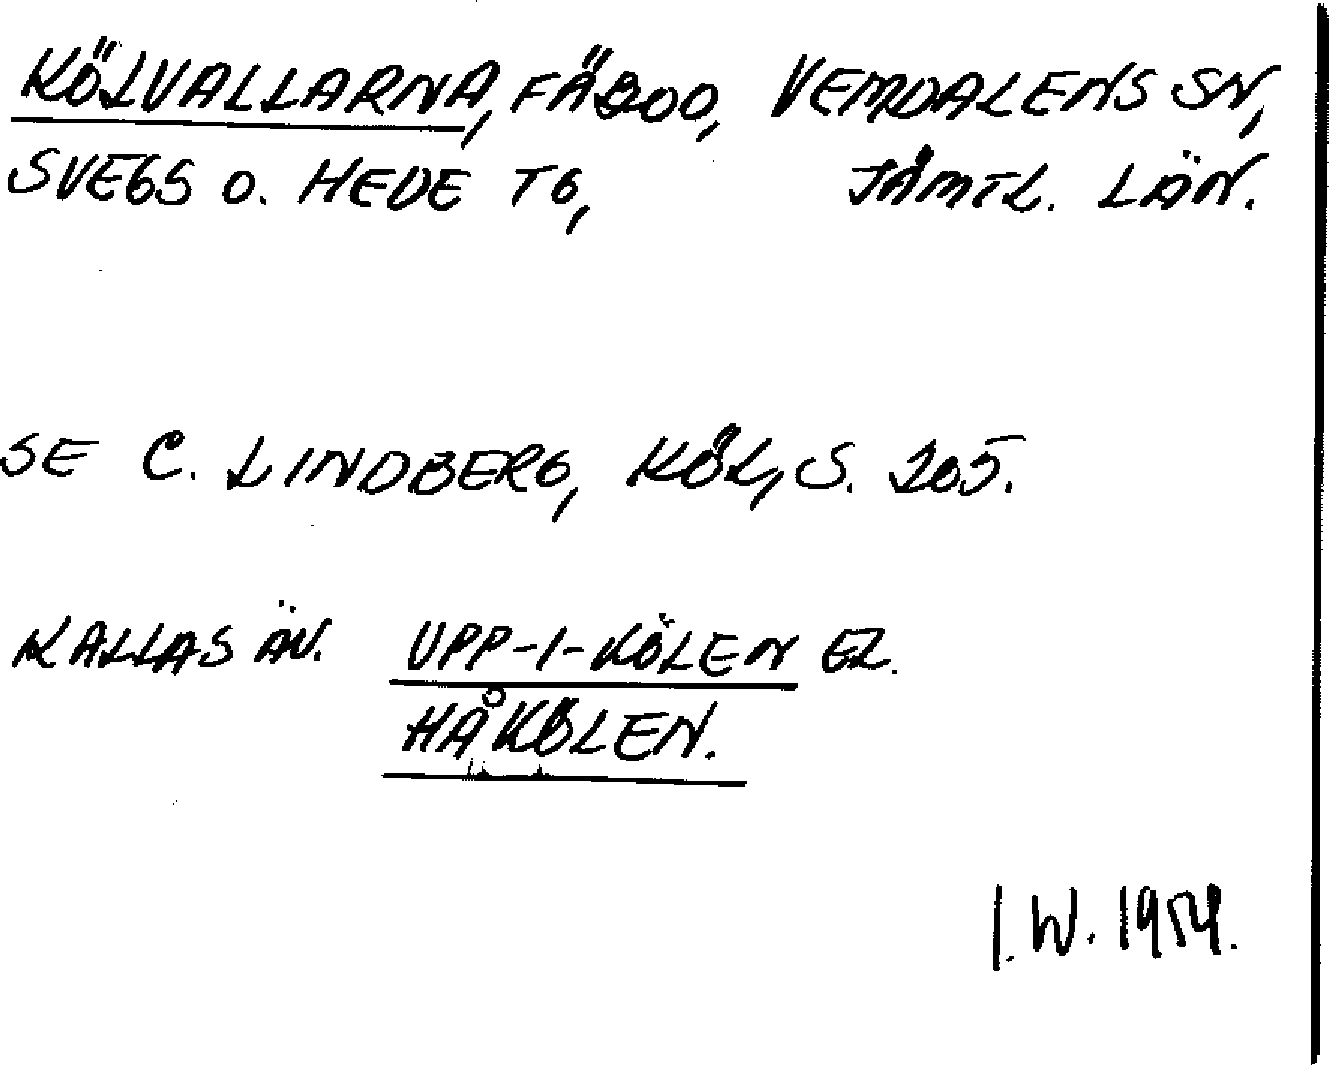 KÖLVALLARNA, FÄBOD, VEMDALENS SN,
SVEGS O. HEDE TG, JÄMTL. LÄN.
SE C. LINDBERG, KÖL, S. 205.
KALLAS ÄV. UPP-I-KÖLEN EL.
HÅKÖLEN.
I.W. 1954.